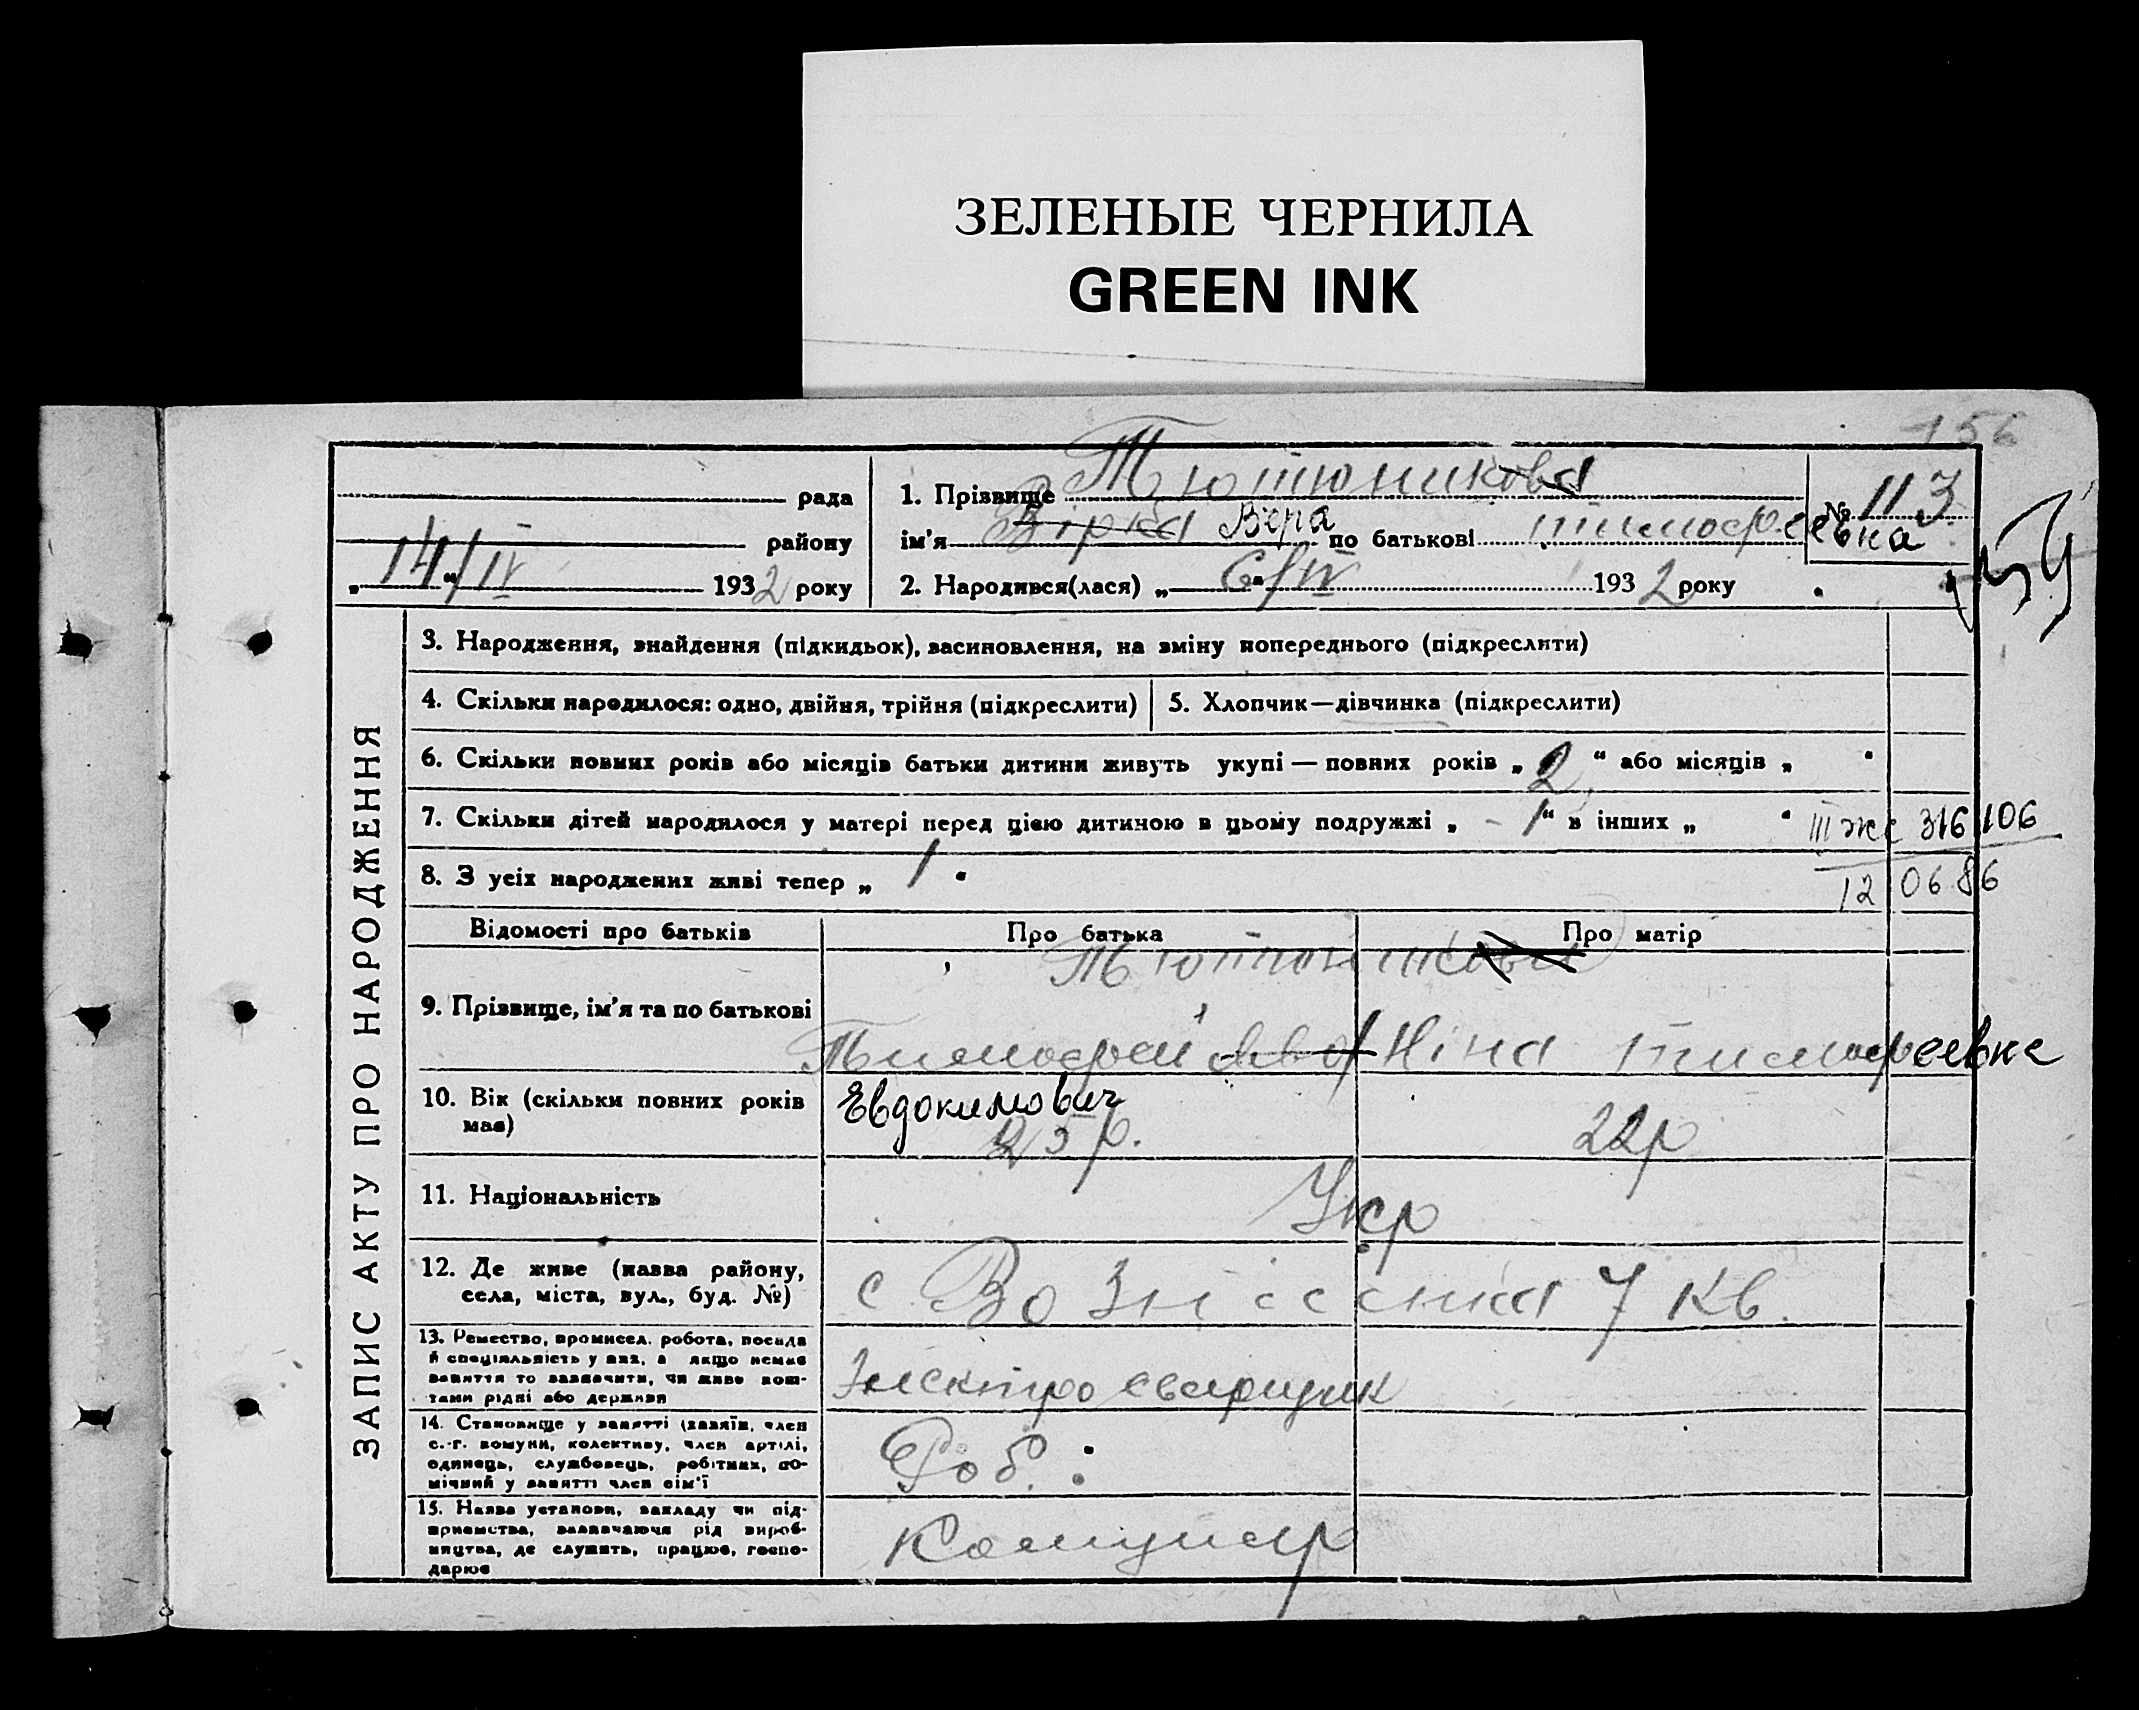 ЗЕЛЕНЫЕ ЧЕРНИЛА
GREEN INK
156
рада
району
„14“/IV 1932 року
1. Прізвище Тютюникова
ім'я Вірка Вера по батькові тимофеевна
2. Народився(лася) „6“/IV 1932 року
№ 113
ЗАПИС АКТУ ПРО НАРОДЖЕННЯ
3. Народження, знайдення (підкидьок), засиновлення, на зміну попереднього (підкреслити)
4. Скільки народилося: одно, двійня, трійня (підкреслити)
5. Хлопчик—дівчинка (підкреслити)
6. Скільки повних років або місяців батьки дитини живуть укупі — повних років „2“ або місяців „ “
7. Скільки дітей народилося у матері перед цією дитиною в цьому подружжі „ - 1“ в інших „ “
III жс 316106
8. З усіх народжених живі тепер „ 1 “
12 06 86
Відомості про батьків
Про батька
Про матір
9. Прізвище, ім'я та по батькові
Тютюникова
Тимофей
Ніна тимофеевна
10. Вік (скільки повних років має)
Евдокимович
25р.
22р
11. Національність
Укр
12. Де живе (назва району,
села, міста, вул., буд. №)
с Вознісенка 7 кв.
13. Ремество, промисел. робота, посада
й спеціяльність у них, а якщо немає
заняття то зазначити, чи живе кош-
тами рідні або держави
Электросварщик
14. Становище у занятті (хазяїн, член
с.-г. комуни, колективу, член артілі,
одинець, службовець, робітник, по-
мічний у занятті член сім'ї
Роб.:
15. Назва установи, закладу чи під-
приємства, зазначаючи рід вироб-
ництва, де служить, працює, госпо-
дарює
Комунар